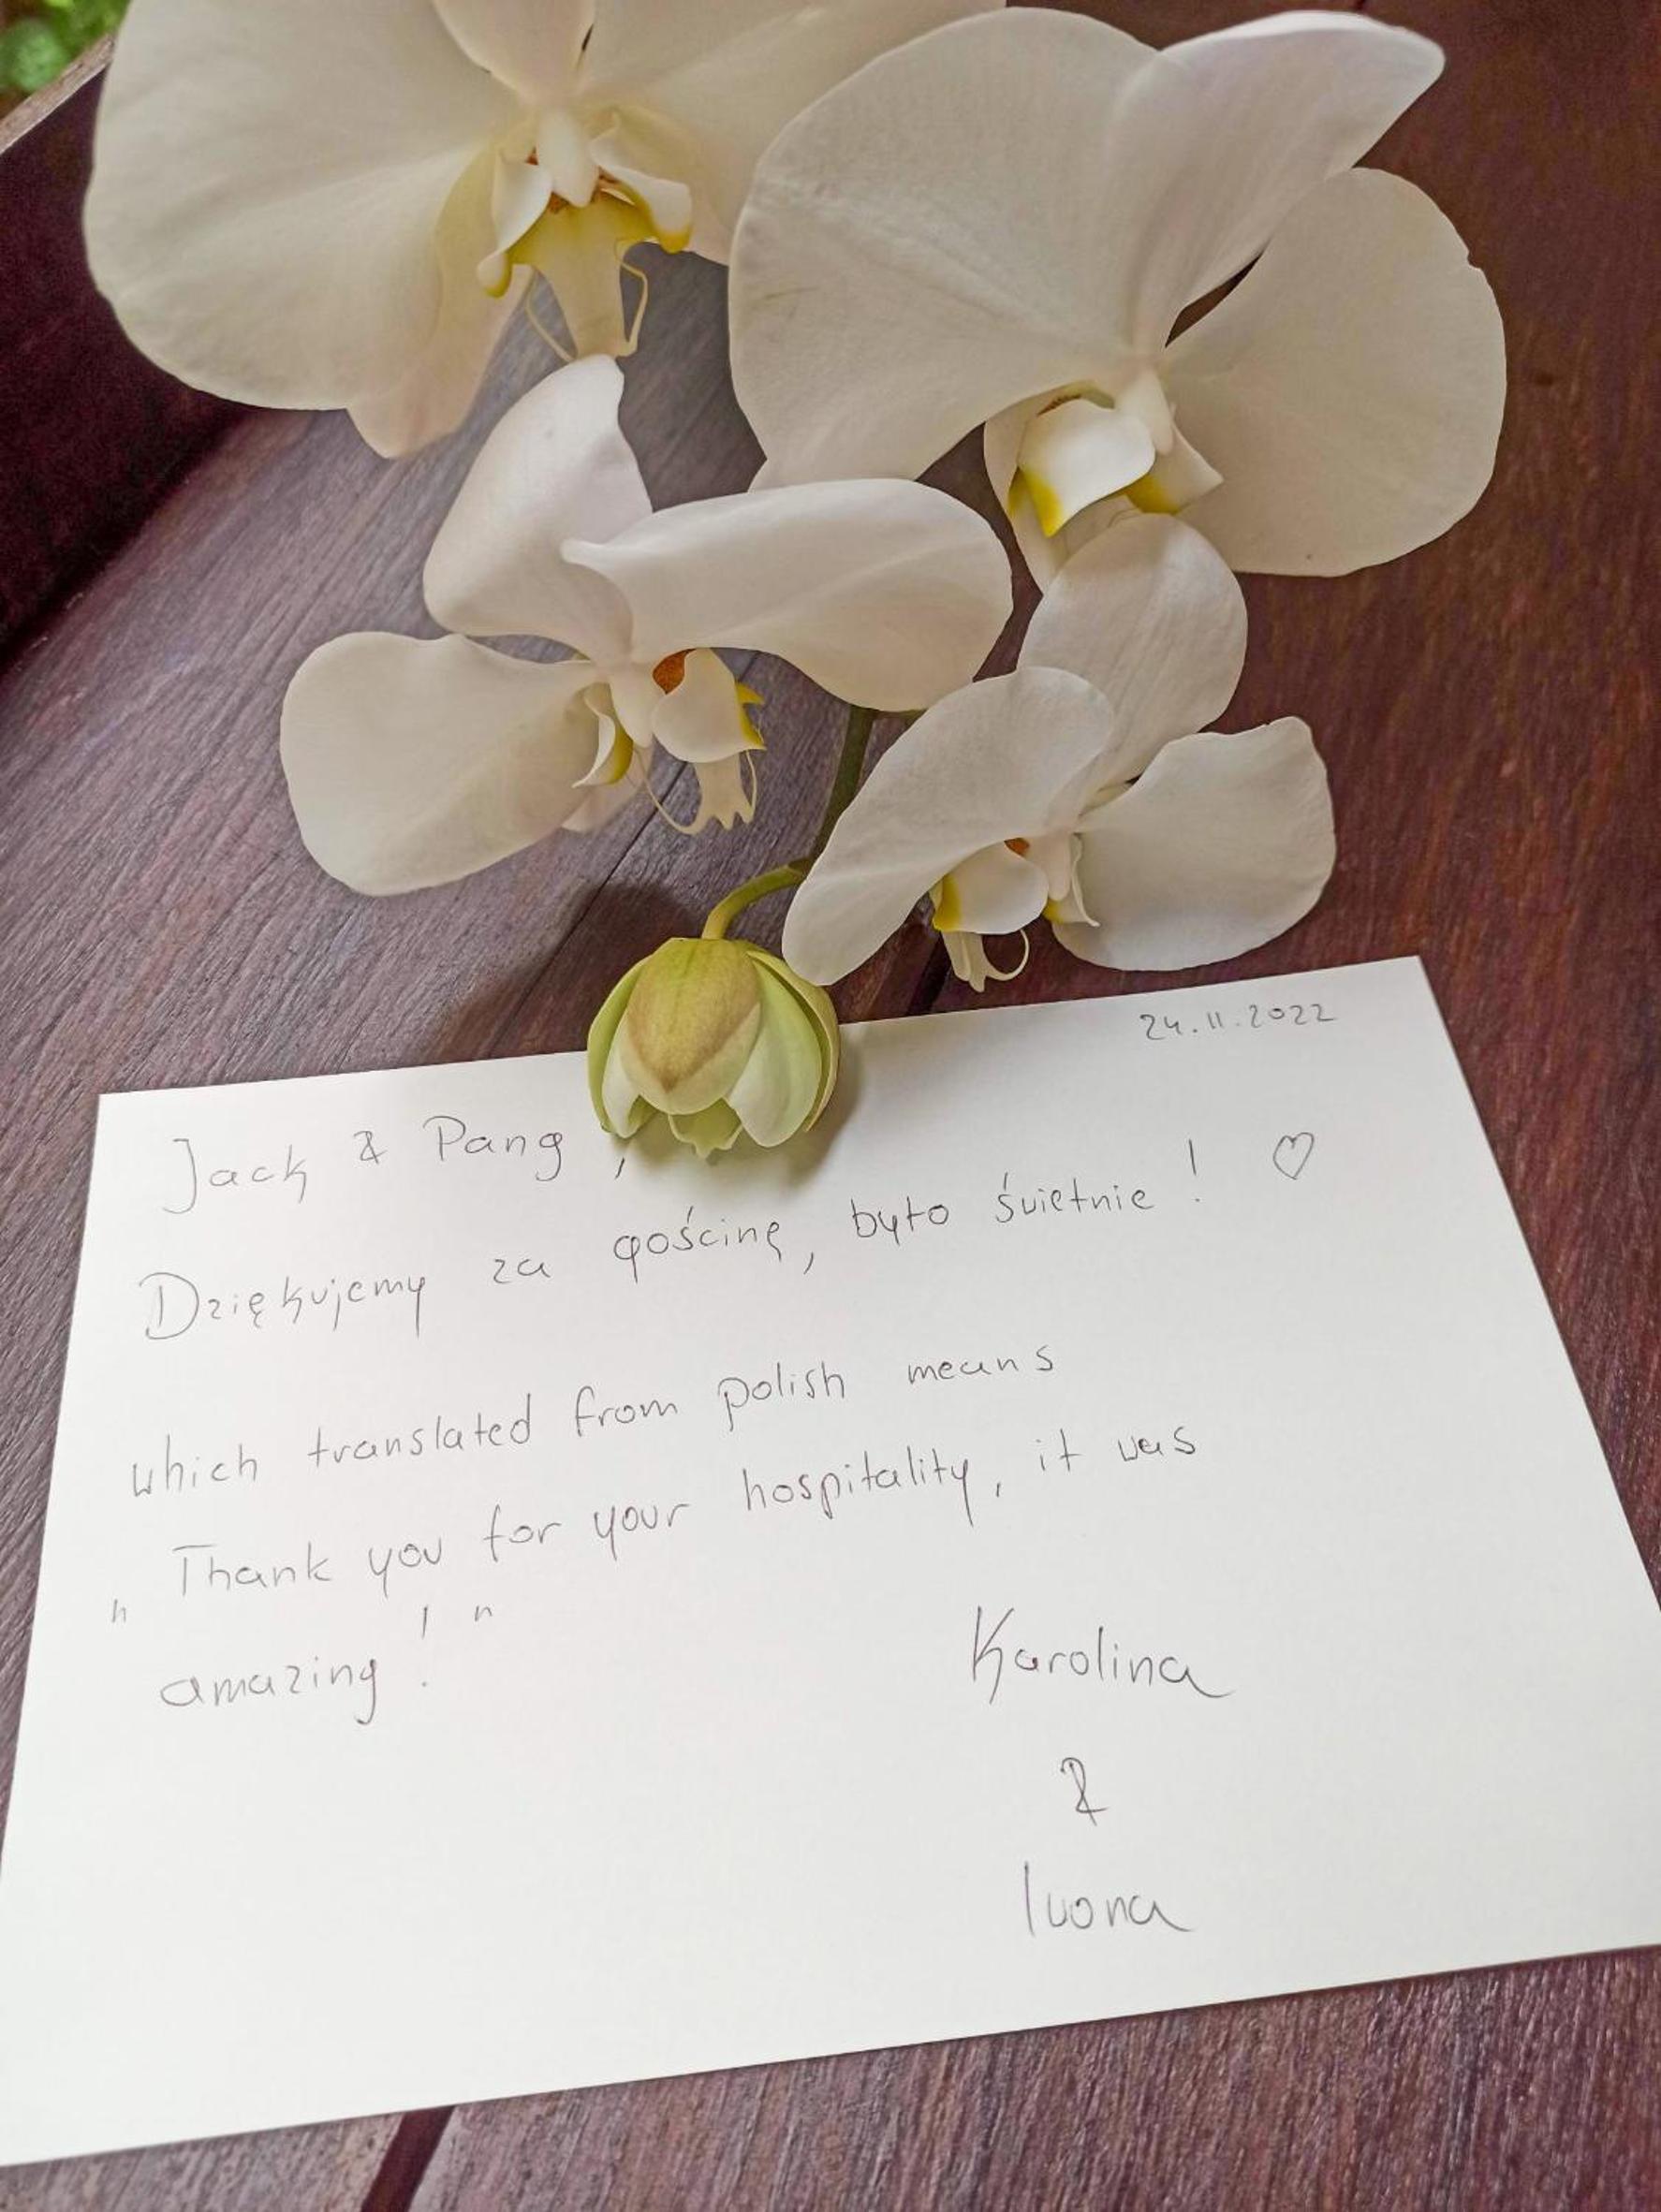 24.11.2022
Jack & Pang,
Dziękujemy za gościnę, było świetnie! ♡
which translated from polish means
"Thank you for your hospitality, it was
amazing!"
Karolina
&
Iwona